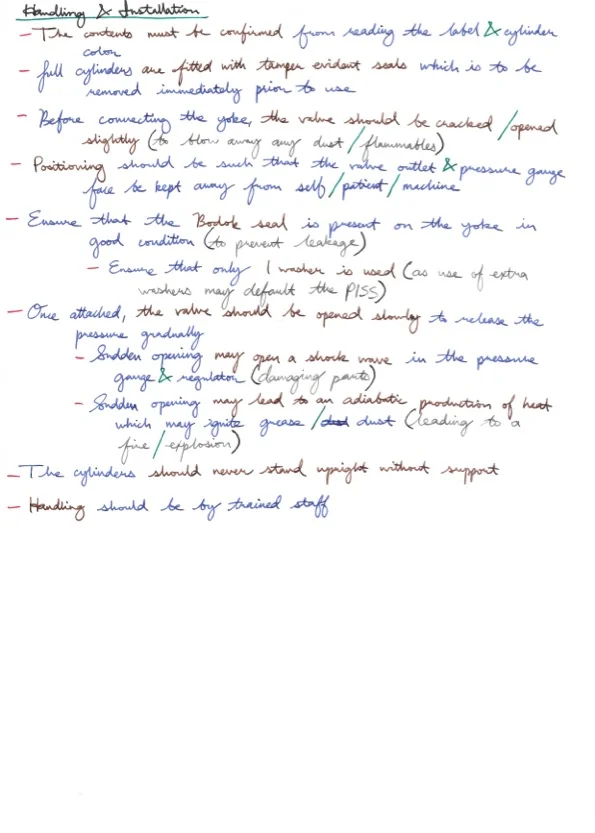 Handling & Installation
- The contents must be confirmed from reading the label & cylinder
color
- full cylinders are fitted with tamper evident seals which is to be
removed immediately prior to use
- Before connecting the yoke, the valve should be cracked / opened
slightly (to blow away any dust / flammables)
- Positioning should be such that the valve outlet & pressure gauge
face be kept away from self / patient / machine
- Ensure that the Bodok seal is present on the yoke in
good condition (to prevent leakage)
- Ensure that only 1 washer is used (as use of extra
washers may default the PISS)
- Once attached, the valve should be opened slowly to release the
pressure gradually
- Sudden opening may open a shock wave in the pressure
gauge & regulator (damaging parts)
- Sudden opening may lead to an adiabatic production of heat
which may ignite grease / dust (leading to a
fire / explosion)
- The cylinders should never stand upright without support
- Handling should be by trained staff